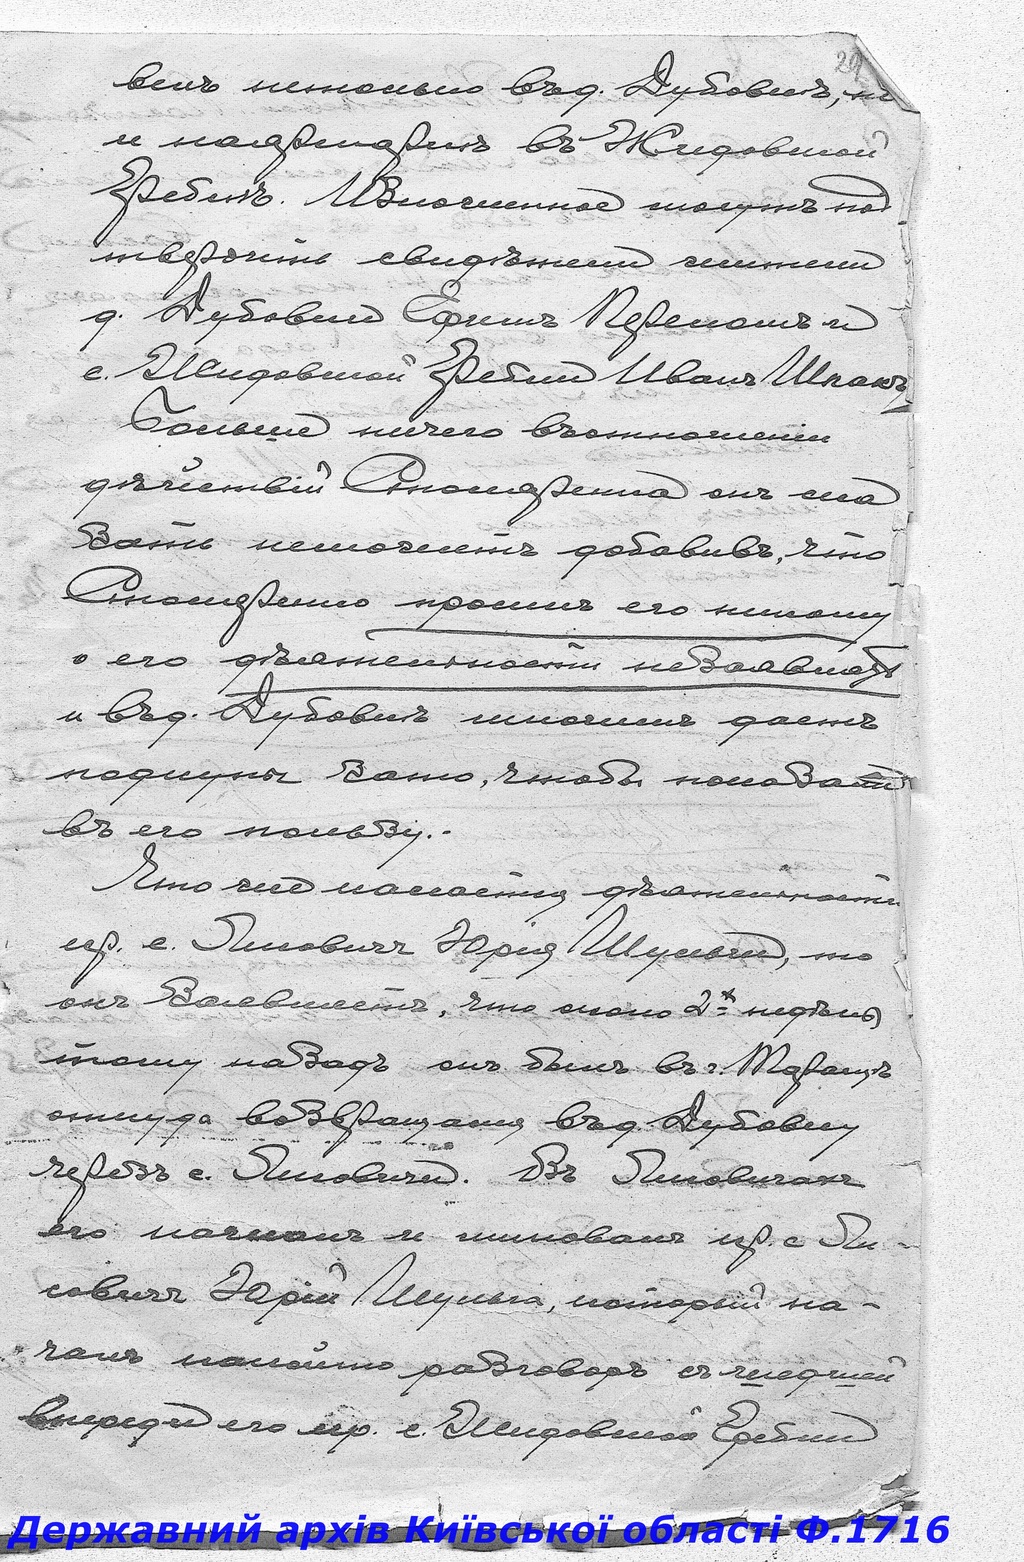 29
велъ нетолько въ д. Дубовкѣ, но
и напримѣръ въ Жидовской
Гребли. Изложенное могутъ под
твердить свидѣтели жители
д. Дубовки Ефимъ и
с. Жидовской Гребли Иванъ Шпакъ
Больше ничего въ отношеніи
дѣйствій онъ ска
зать неможетъ добавивъ, что
просилъ его никому
о его дѣятельности незаявлять
и въ д. Дубовкѣ многимъ даетъ
подкупы зато, чтобы показали
въ его пользу.-
Что же касается дѣятельности
кр. с. Лисовичъ Юрія Шульги, то
онъ заявляетъ, что около 2х недѣль
тому назадъ онъ былъ въ г. Таращѣ
откуда возвращался въ д. Дубовку
черезъ с. Лисовичи. Въ Лисовичахъ
его нагналъ и миновалъ кр. с Ли-
совичъ Юрій Шульга, который на-
чалъ какой то разговоръ съ шедшей
впереди его кр. с. Жидовской Гребли
Державний архів Київської області Ф.1716